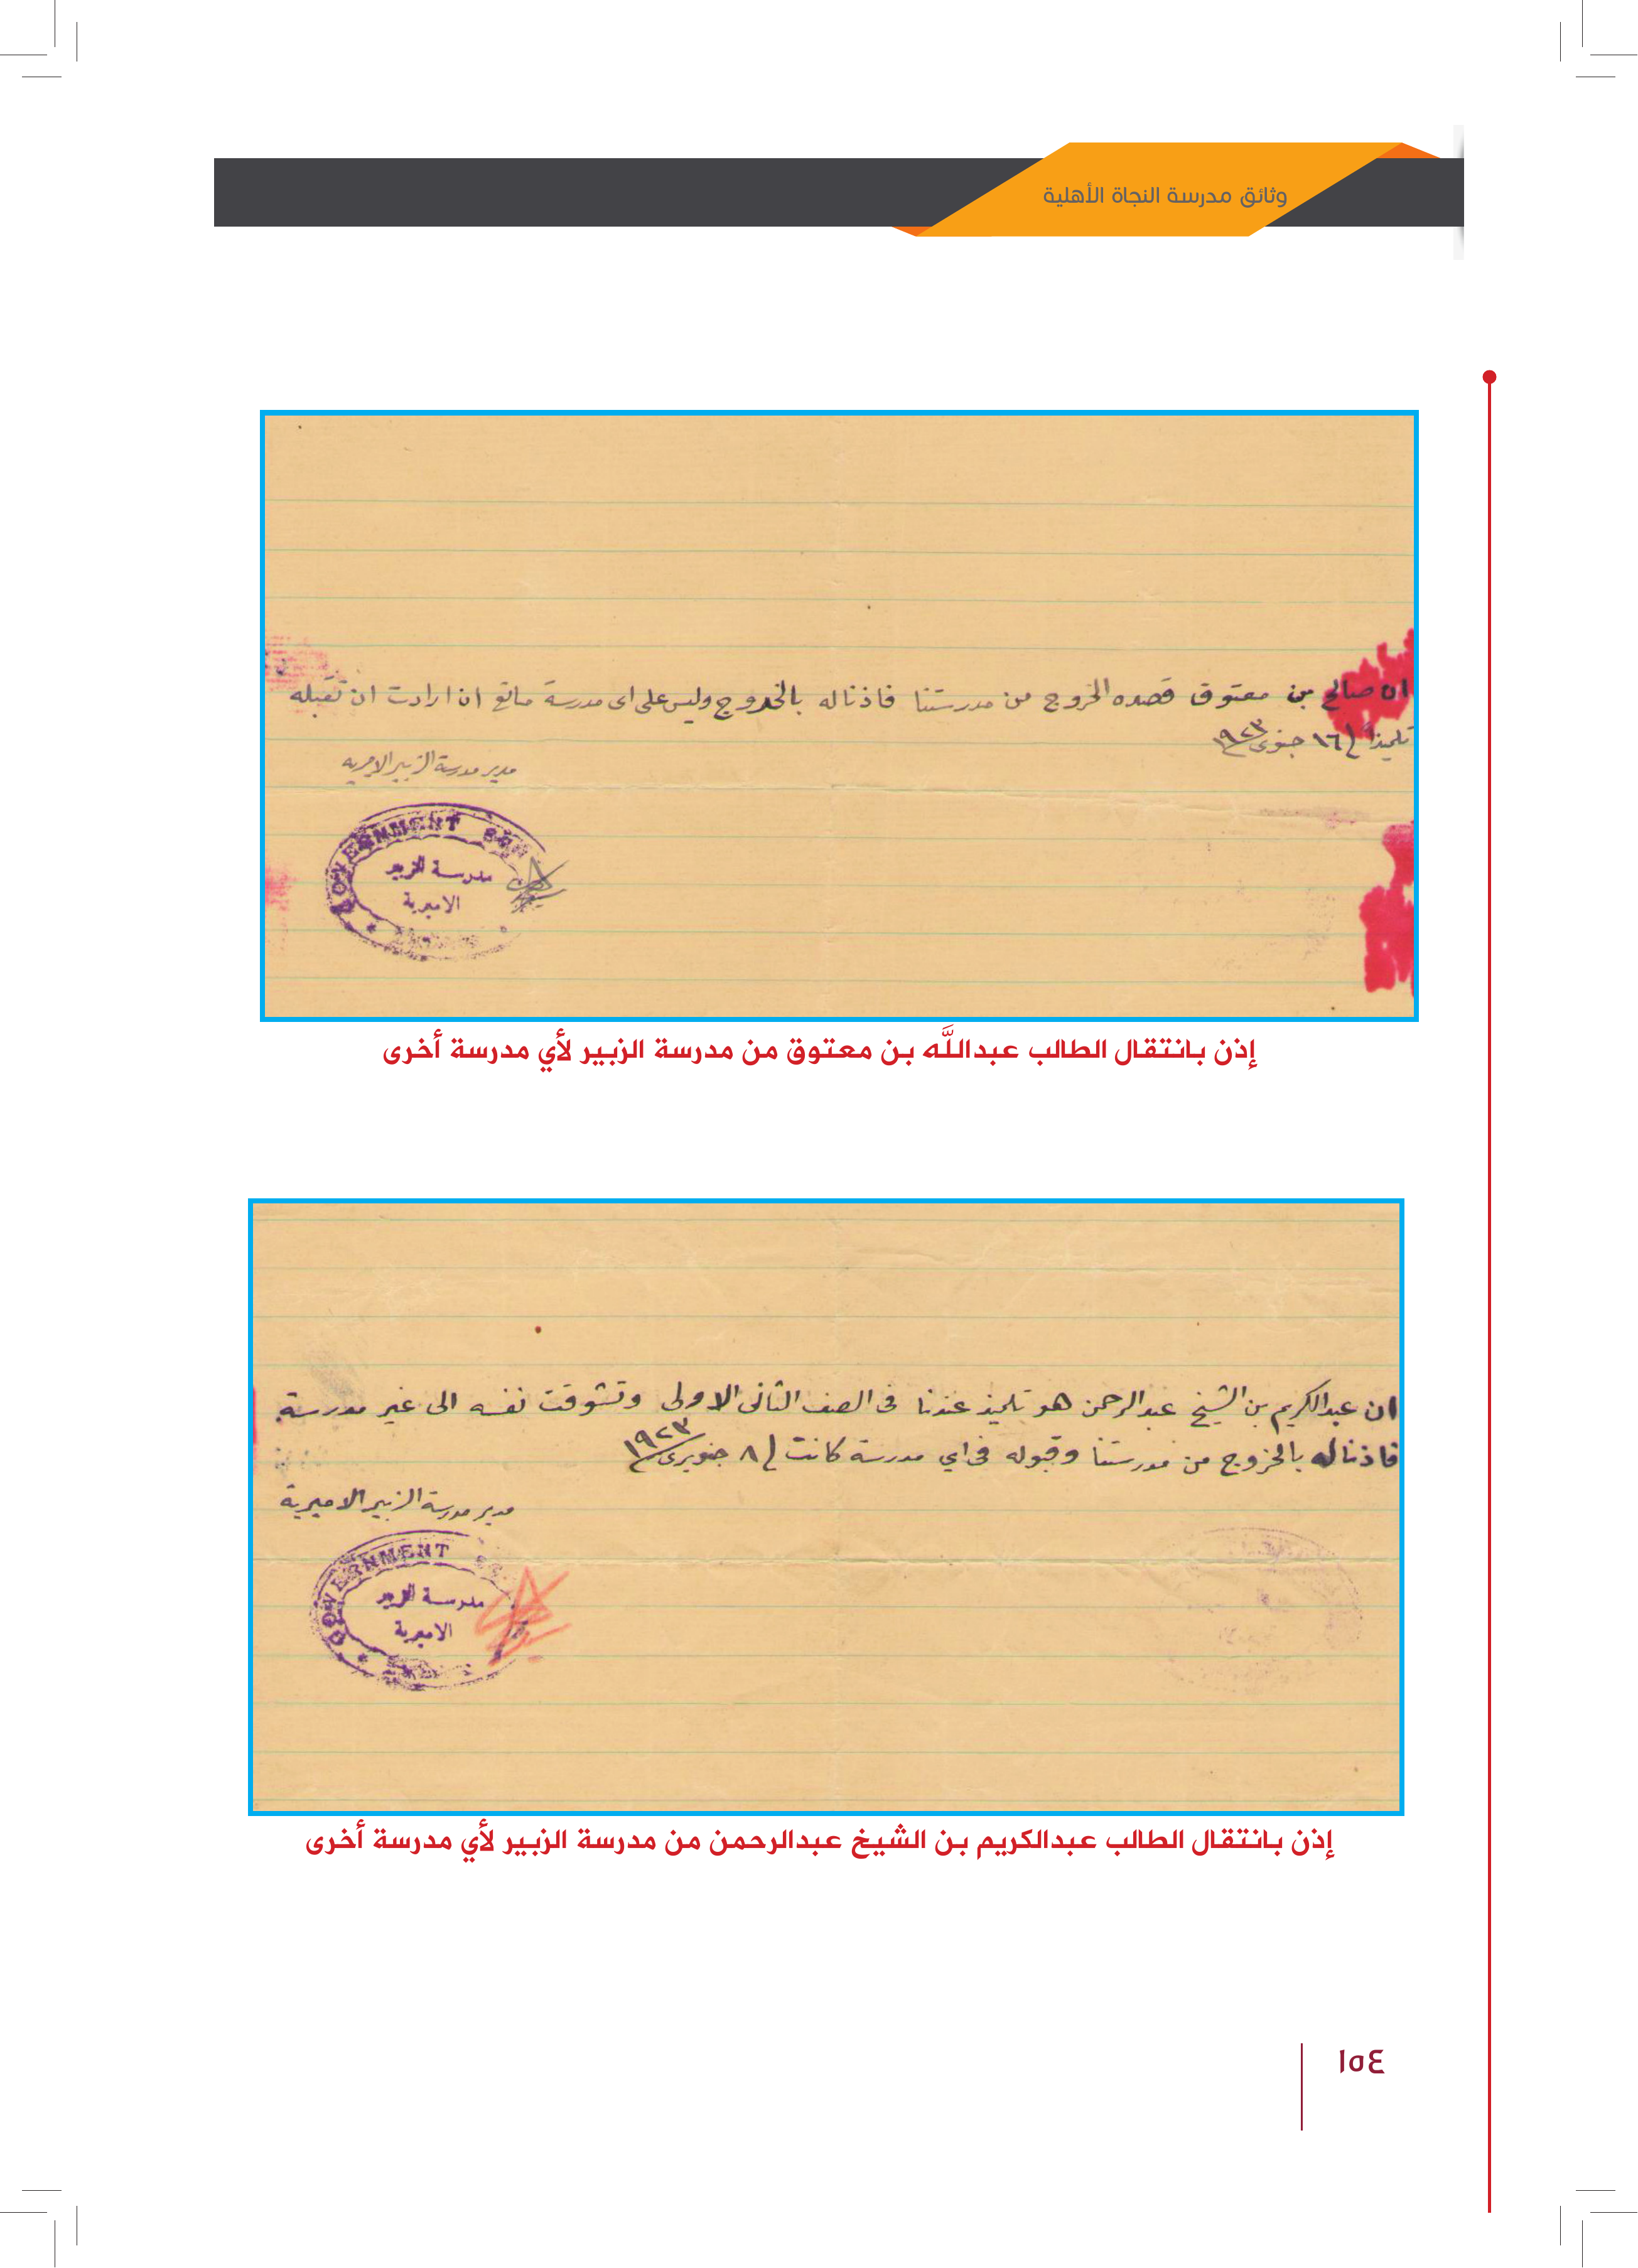 وثائق مدرسة النجاة الأهلية
ان صالح بن معتوق قصده الخروج من مدرستنا فاذنا له بالخروج وليس على اى مدرسة مانع ان ارادت ان تقبله
تلميذاً ١٦ جنوری ١٩٢٣
مدير مدرسة الزبير الاميريه
GOVERNMENT
مدرسة الزبير
الاميرية
إذن بانتقال الطالب عبداللَّه بن معتوق من مدرسة الزبير لأي مدرسة أخرى
ان عبدالكريم بن الشيخ عبدالرحمن هو تلميذ عندنا فى الصف الثانى الاولى وتشوقت نفسه الى غير مدرسة
فاذنا له بالخروج من مدرستنا وقبوله فى اي مدرسة كانت ٨ جنويرى ١٩٢٣
مدير مدرسة الزبير الاميرية
GOVERNMENT
مدرسة الزبير
الاميرية
إذن بانتقال الطالب عبدالكريم بن الشيخ عبدالرحمن من مدرسة الزبير لأي مدرسة أخرى
١٥٤